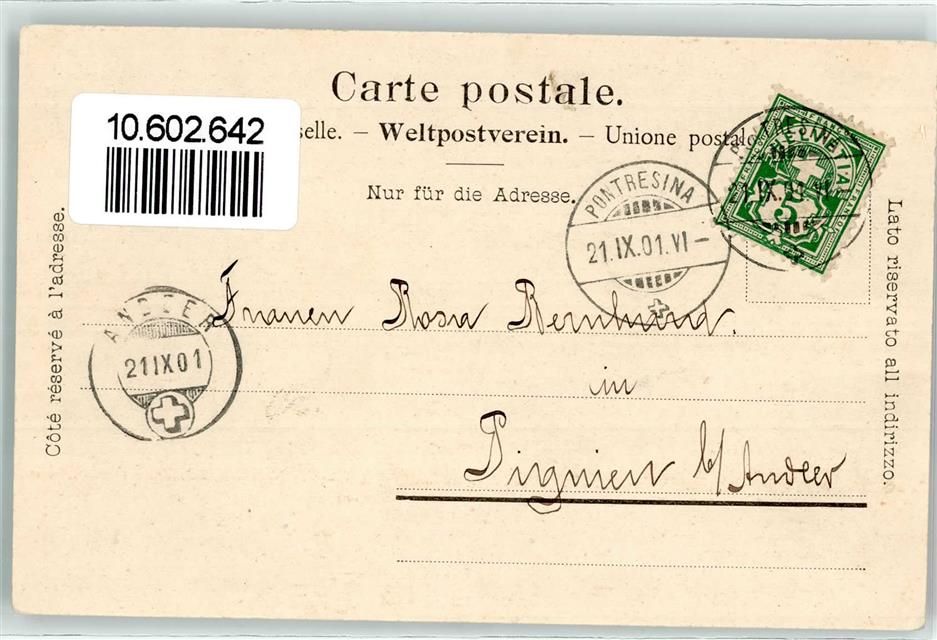 Carte postale.
10.602.642
selle. – Weltpostverein. – Unione postale
Nur für die Adresse.
HELVETIA
5
21.IX.01.VI–
PONTRESINA
21.IX.01.VI–
Côté réservé à l'adresse.
Lato riservato all indirizzo.
ANDEER
21 IX 01
Frauen Rosa Bernhard.
in
Pignieu b/Andeer